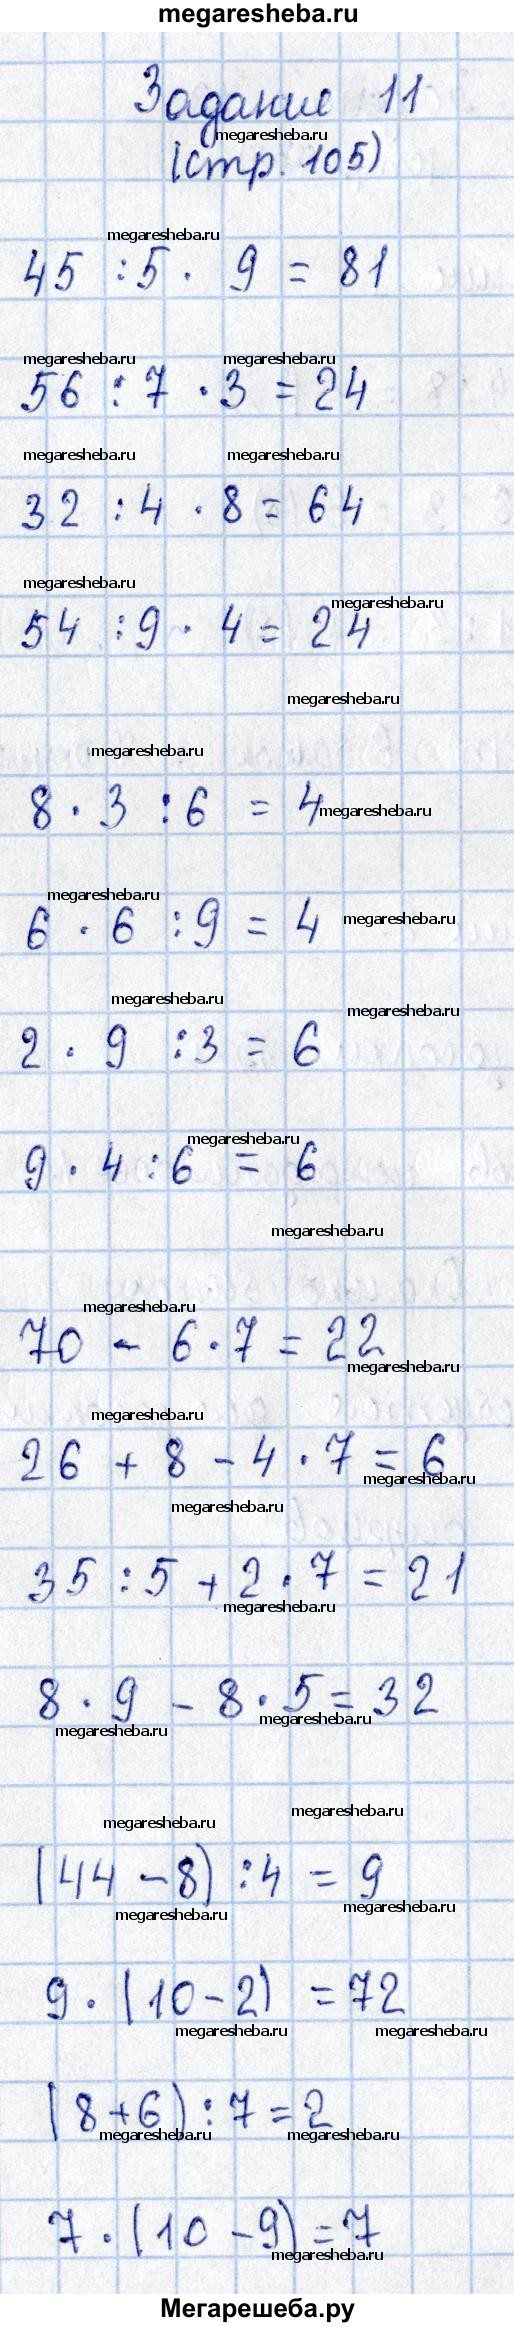 megaresheba.ru
Задание 11
megaresheba.ru
(стр. 105)
megaresheba.ru
45 : 5 · 9 = 81
megaresheba.ru megaresheba.ru
56 : 7 · 3 = 24
megaresheba.ru megaresheba.ru
32 : 4 · 8 = 64
megaresheba.ru
megaresheba.ru
54 : 9 · 4 = 24
megaresheba.ru
megaresheba.ru
8 · 3 : 6 = 4
megaresheba.ru
megaresheba.ru
6 · 6 : 9 = 4
megaresheba.ru
megaresheba.ru
megaresheba.ru
2 · 9 : 3 = 6
megaresheba.ru
9 · 4 : 6 = 6
megaresheba.ru
megaresheba.ru
70 - 6 · 7 = 22
megaresheba.ru
megaresheba.ru
26 + 8 - 4 · 7 = 6
megaresheba.ru
megaresheba.ru
35 : 5 + 2 · 7 = 21
megaresheba.ru
8 · 9 - 8 · 5 = 32
megaresheba.ru
megaresheba.ru
megaresheba.ru
megaresheba.ru
(44 - 8) : 4 = 9
megaresheba.ru
megaresheba.ru
9 · (10 - 2) = 72
megaresheba.ru megaresheba.ru
(8 + 6) : 7 = 2
megaresheba.ru megaresheba.ru
7 · (10 - 9) = 7
megaresheba.ru
Мегарешеба.ру